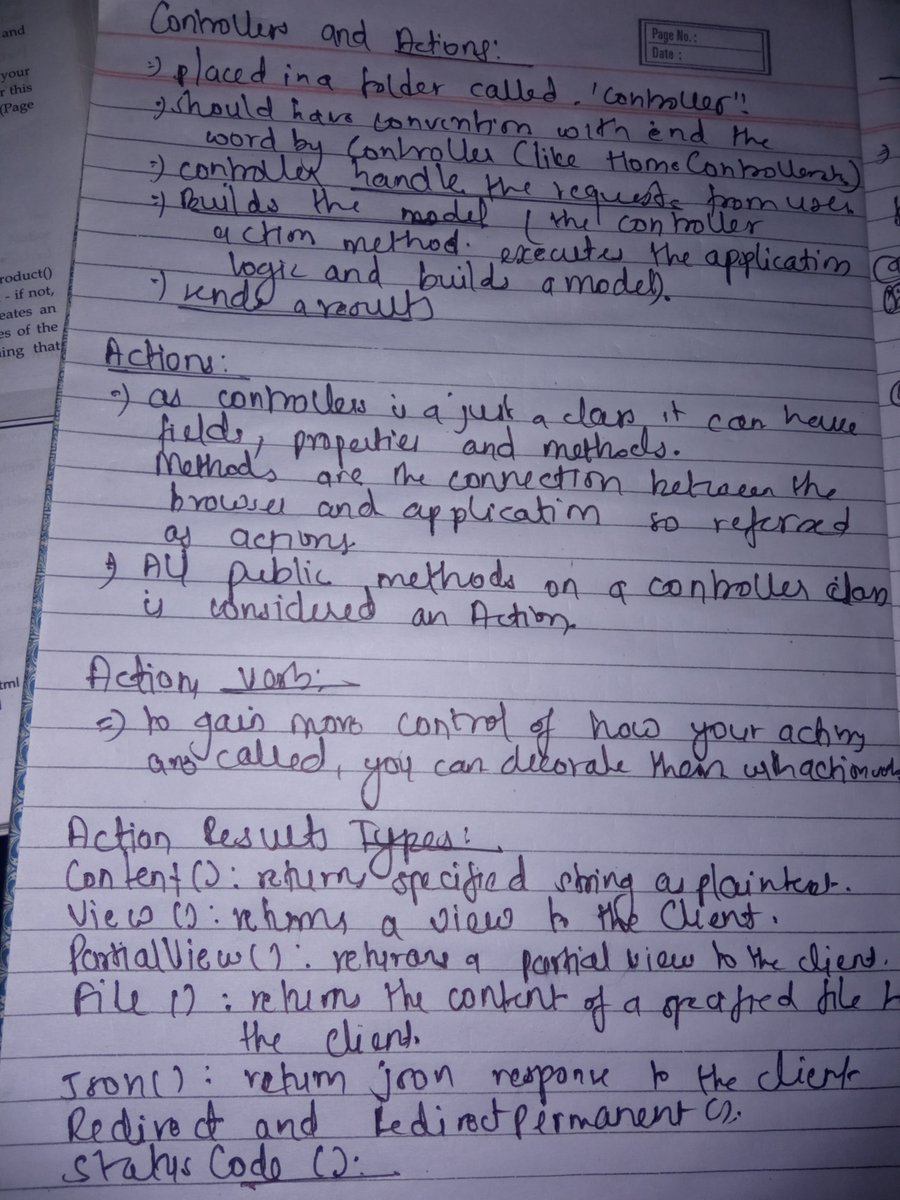 and
your
r this
(Page
roduct()
- if not,
eates an
es of the
ing that
tml
Page No.:
Date:
Controllers and Actions:
=) placed in a folder called. 'Controller'!
=) should have convention with end the
word by Controller (like HomeController)
=) controller handle the requests from user
=) Builds the model (the controller
action method. executes the application
logic and builds a model).
=) sends a results
Actions:
=) as controllers is a just a class it can have
fields, properties and methods.
Methods are the connection between the
browser and application so referred
as actions
=) All public methods on a controller class
is considered an Action.
Action verb:
=) to gain more control of how your actions
are called, you can decorate them with action
Action Results Types:
Content(): returns specified string as plaintext.
View(): returns a view to the Client.
PartialView(): returns a partial view to the client.
File(): returns the content of a specified file t
the client.
Json(): return json response to the client
Redirect and RedirectPermanent().
Status Code ():